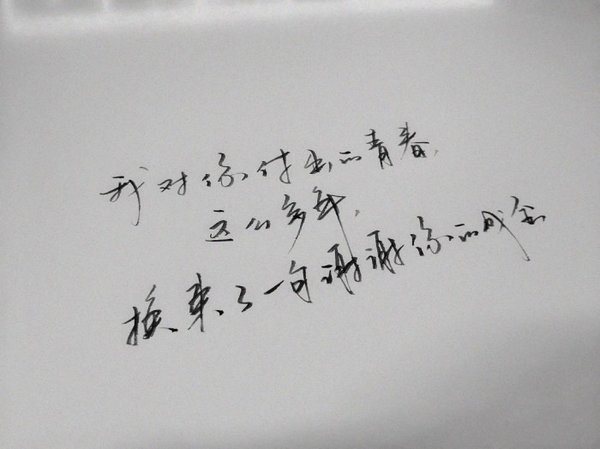 我对你付出的青春，
这么多年，
换来了一句谢谢你的成全